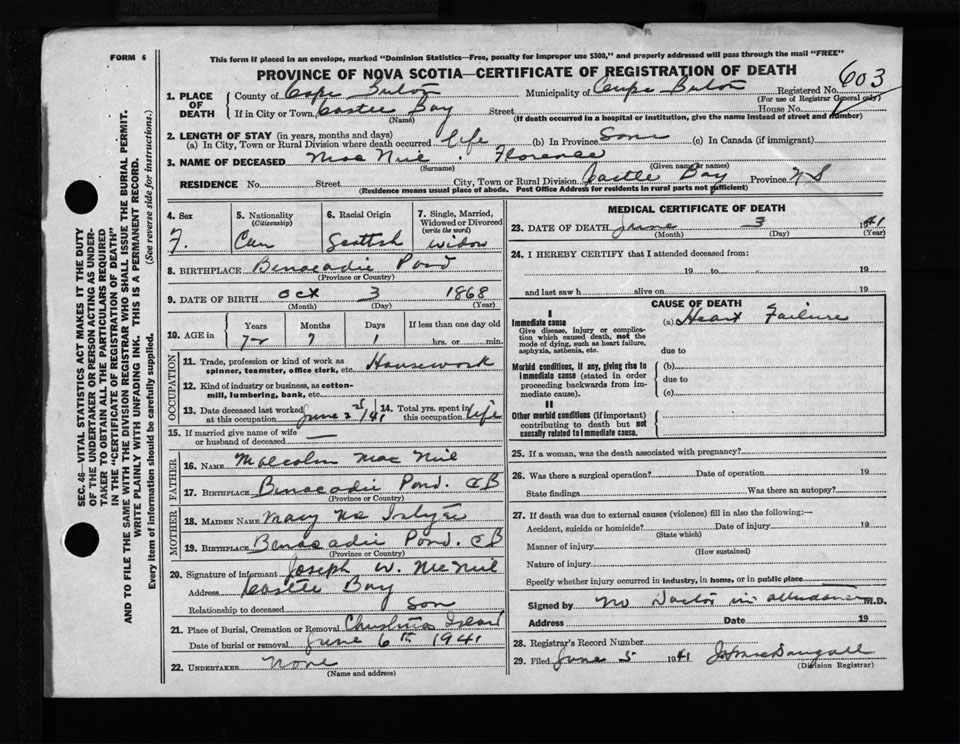 FORM 6
This form if placed in an envelope, marked "Dominion Statistics—Free, penalty for improper use $300," and properly addressed will pass through the mail "FREE"
PROVINCE OF NOVA SCOTIA—CERTIFICATE OF REGISTRATION OF DEATH
603
1. PLACE OF DEATH
County of Cape Breton Municipality of Cape Breton Registered No.
(For use of Registrar General only)
If in City or Town Castle Bay Street House No.
(Name) (If death occurred in a hospital or institution, give the name instead of street and number)
2. LENGTH OF STAY (in years, months and days)
(a) In City, Town or Rural Division where death occurred life (b) In Province Same (c) In Canada (if immigrant)
3. NAME OF DECEASED Mac Neil . Florence
(Surname) (Given name or names)
RESIDENCE No. Street City, Town or Rural Division Castle Bay Province N S
(Residence means usual place of abode. Post Office Address for residents in rural parts not sufficient)
4. Sex 5. Nationality (Citizenship) 6. Racial Origin 7. Single, Married, Widowed or Divorced (write the word)
F. Can Scottish widow
8. BIRTHPLACE Benacadie Pond
(Province or Country)
9. DATE OF BIRTH Oct 3 1868
(Month) (Day) (Year)
10. AGE in Years Months Days If less than one day old
72 7 1 hrs. or min.
OCCUPATION
11. Trade, profession or kind of work as spinner, teamster, office clerk, etc. Housework
12. Kind of industry or business, as cotton-mill, lumbering, bank, etc.
13. Date deceased last worked at this occupation June 2nd/41 14. Total yrs. spent in this occupation life
15. If married give name of wife or husband of deceased —
FATHER
16. NAME Malcolm Mac Neil
17. BIRTHPLACE Benacadie Pond. C B
(Province or Country)
MOTHER
18. MAIDEN NAME Mary
19. BIRTHPLACE Benacadie Pond. C B
(Province or Country)
20. Signature of informant Joseph W. McNeil
Address Castle Bay
Relationship to deceased Son
21. Place of Burial, Cremation or Removal Christmas Island
Date of burial or removal June 6th 1941
22. UNDERTAKER None
(Name and address)
MEDICAL CERTIFICATE OF DEATH
23. DATE OF DEATH June 3 1941
(Month) (Day) (Year)
24. I HEREBY CERTIFY that I attended deceased from:
19 to 19
and last saw h alive on 19
CAUSE OF DEATH
I
Immediate cause (a) Heart Failure
Give disease, injury or complication which caused death, not the mode of dying, such as heart failure, asphyxia, asthenia, etc.
due to
Morbid conditions, if any, giving rise to immediate cause (stated in order proceeding backwards from immediate cause).
(b)
due to
(c)
II
Other morbid conditions (if important) contributing to death but not causally related to immediate cause.
25. If a woman, was the death associated with pregnancy?
26. Was there a surgical operation? Date of operation 19
State findings Was there an autopsy?
27. If death was due to external causes (violence) fill in also the following:—
Accident, suicide or homicide? Date of injury 19
(State which)
Manner of injury
(How sustained)
Nature of injury
Specify whether injury occurred in industry, in home, or in public place
Signed by No Doctor in attendance M.D.
Address Date 19
28. Registrar's Record Number
29. Filed June 5 1941 J. MacDougall
(Division Registrar)
SEC. 46—VITAL STATISTICS ACT MAKES IT THE DUTY
OF THE UNDERTAKER OR PERSON ACTING AS UNDER-
TAKER TO OBTAIN ALL THE PARTICULARS REQUIRED
IN THE "CERTIFICATE OF REGISTRATION OF DEATH"
AND TO FILE THE SAME WITH THE DIVISION REGISTRAR WHO SHALL ISSUE THE BURIAL PERMIT.
WRITE PLAINLY WITH UNFADING INK. THIS IS A PERMANENT RECORD.
Every item of information should be carefully supplied. (See reverse side for instructions.)